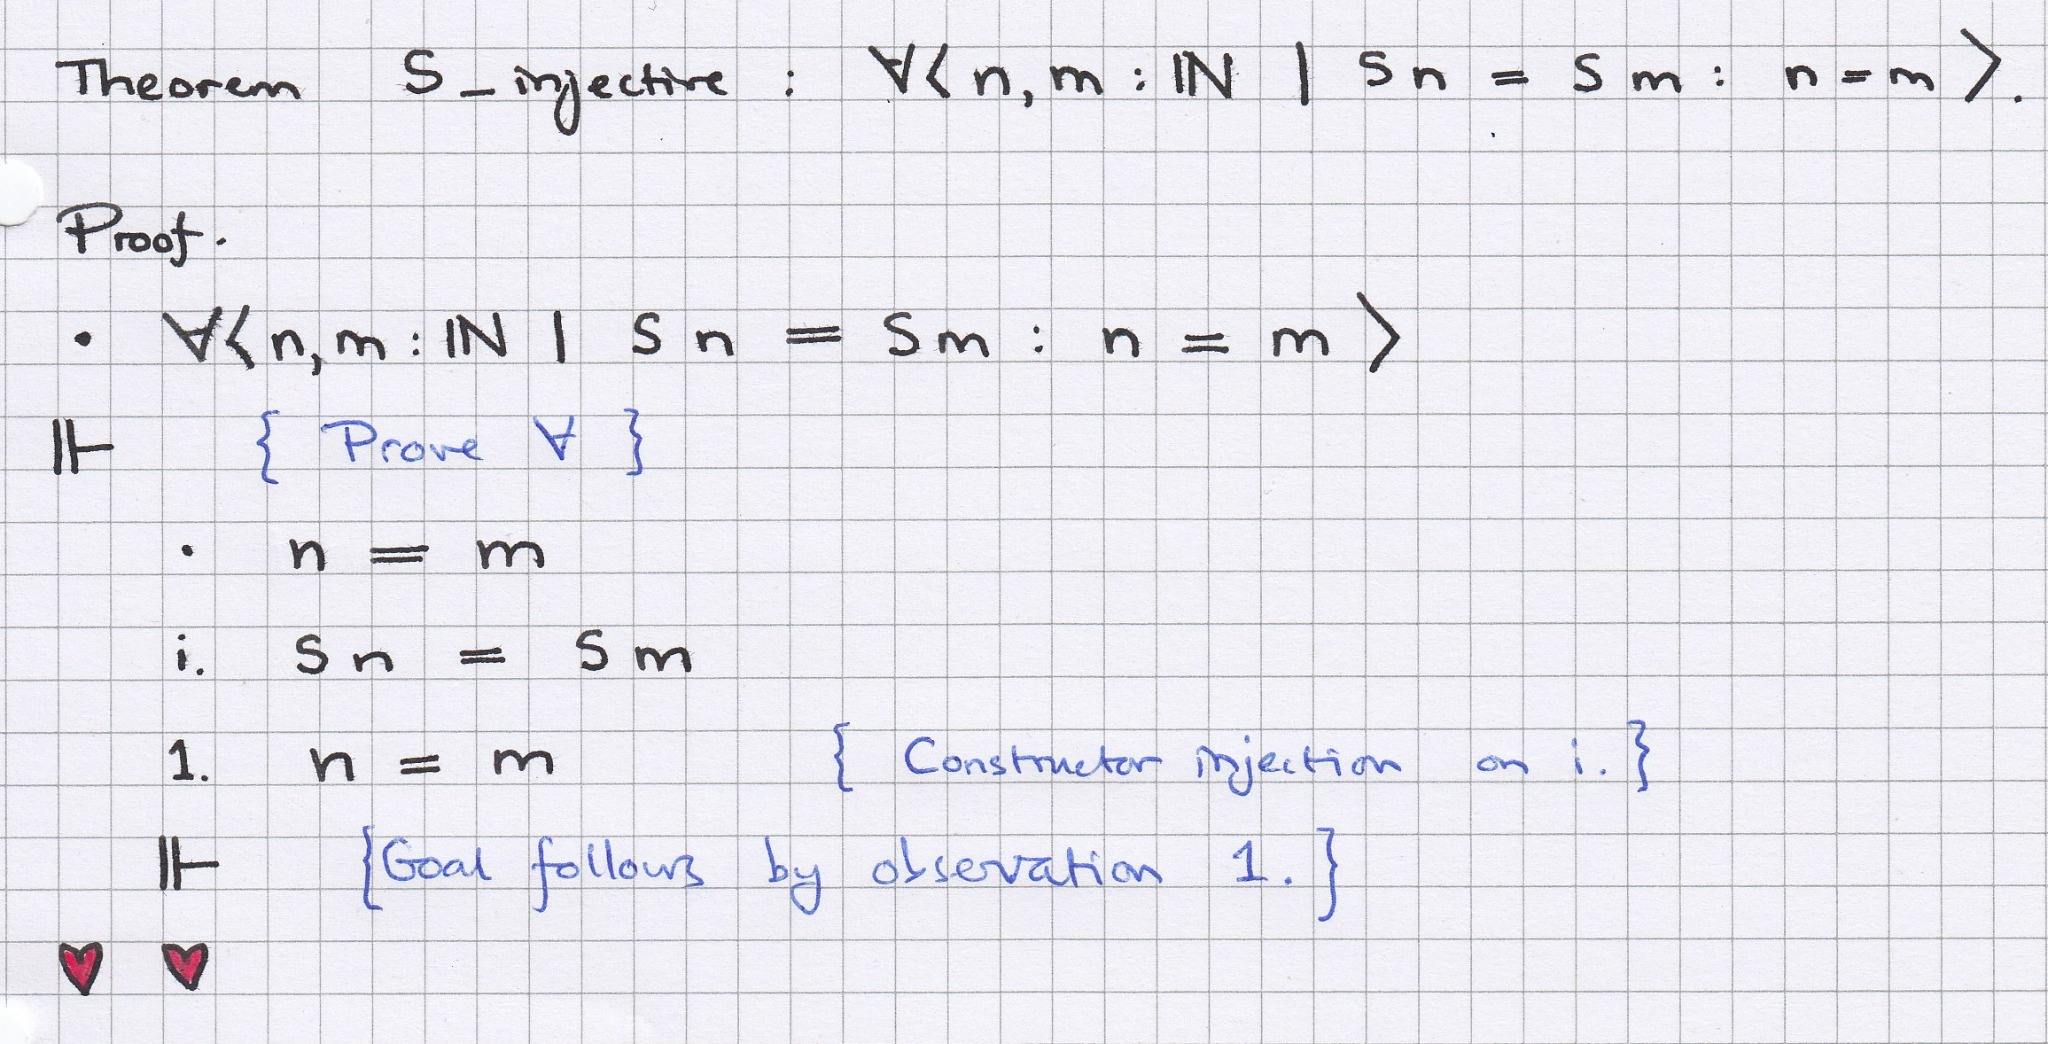 Theorem S_injective : ∀⟨n,m : ℕ | S n = S m : n = m⟩.
Proof.
• ∀⟨n,m : ℕ | S n = S m : n = m⟩
⊩ { Prove ∀ }
• n = m
i. S n = S m
1. n = m { Constructor injection on i. }
⊩ {Goal follows by observation 1.}
♥ ♥